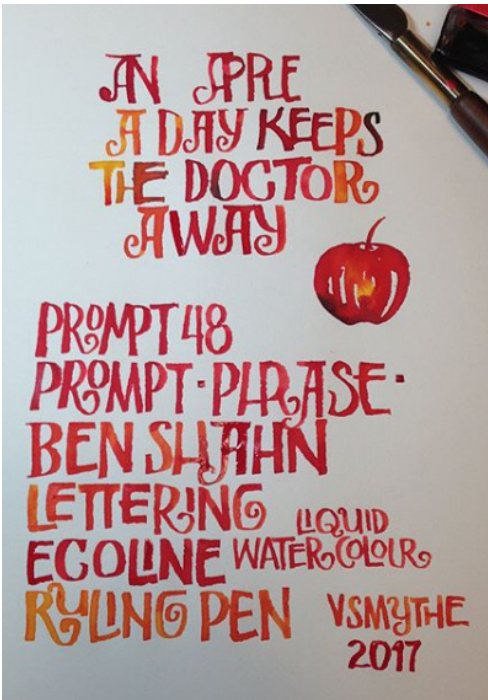 AN APPLE
A DAY KEEPS
THE DOCTOR
AWAY
PROMPT 48
PROMPT · PHRASE ·
BEN SHAHN
LETTERING
LIQUID
ECOLINE WATERCOLOUR
RULING PEN
VSMYTHE
2017